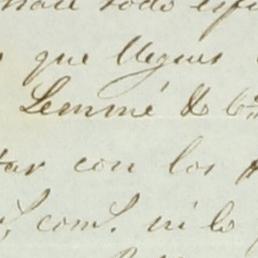 todo
que llegues
Lemmé &
tar con los
com. ni lo